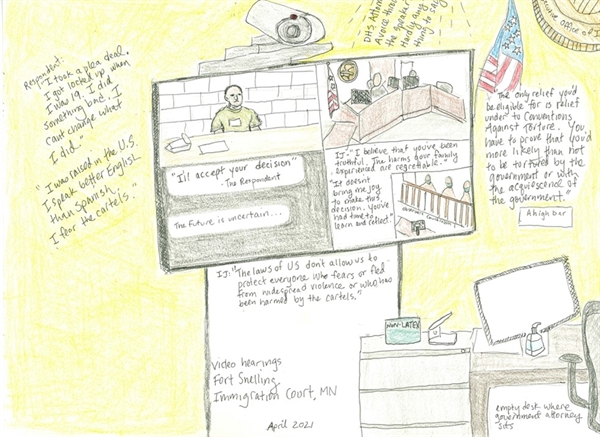 Respondent:
"I took a plea deal.
I got locked up when
I was 19. I did
something bad. I
cant change what
I did."
"I was raised in the U.S.
I speak better English
than Spanish.
I fear the cartels."
DHS Attorney
Voice that
the speaker
Hardly any
thing to say
"I'll accept your decision"
- The Respondent
The Future is uncertain...
IJ-"I believe that you've been
truthful. The harms your family
experienced are regrettable."
"It doesn't
bring me joy
to make this
decision. You've
had time to
learn and reflect."
Office of I
"The only relief you'd
be eligible for is relief
under to Conventions
Against Torture. You
have to prove that you'd
more likely than not
to be tortured by the
government or with
the acquiescence of
the government."
A high bar
IJ: "The laws of US don't allow us to
protect everyone who fears or fled
from widespread violence or who has
been harmed by the cartels."
NON-LATEX
Video hearings
Fort Snelling
Immigration Court, MN
April 2021
empty desk where
government attorney
sits